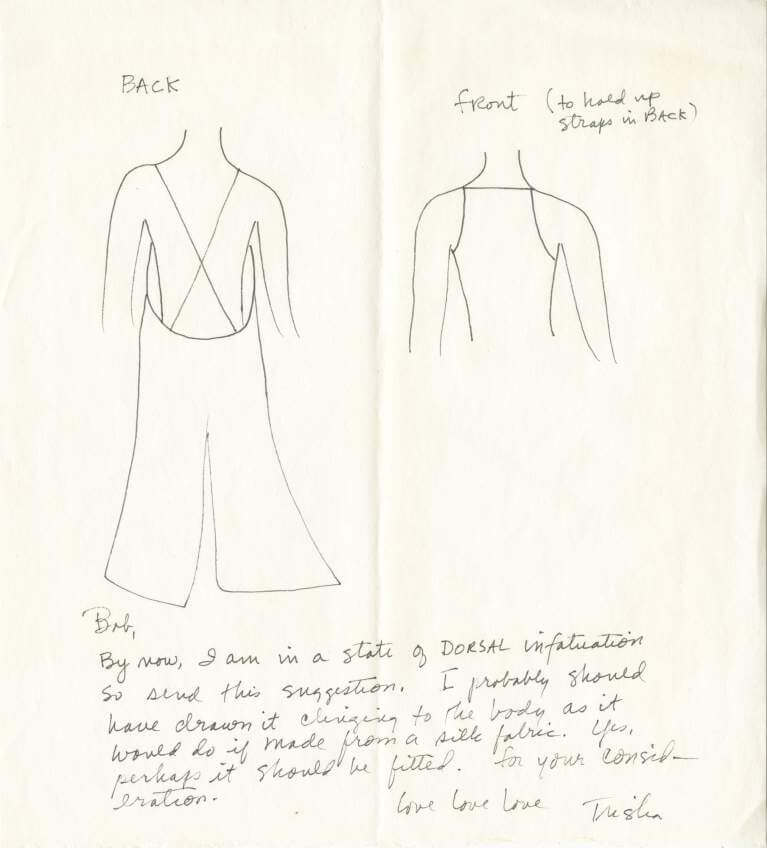 BACK
front (to hold up
straps in BACK)
Bob,
By now, I am in a state of DORSAL infatuation
so send this suggestion. I probably should
have drawn it clinging to the body as it
would do if made from a silk fabric. Yes,
perhaps it should be fitted. for your consid-
eration.
love love love Trisha